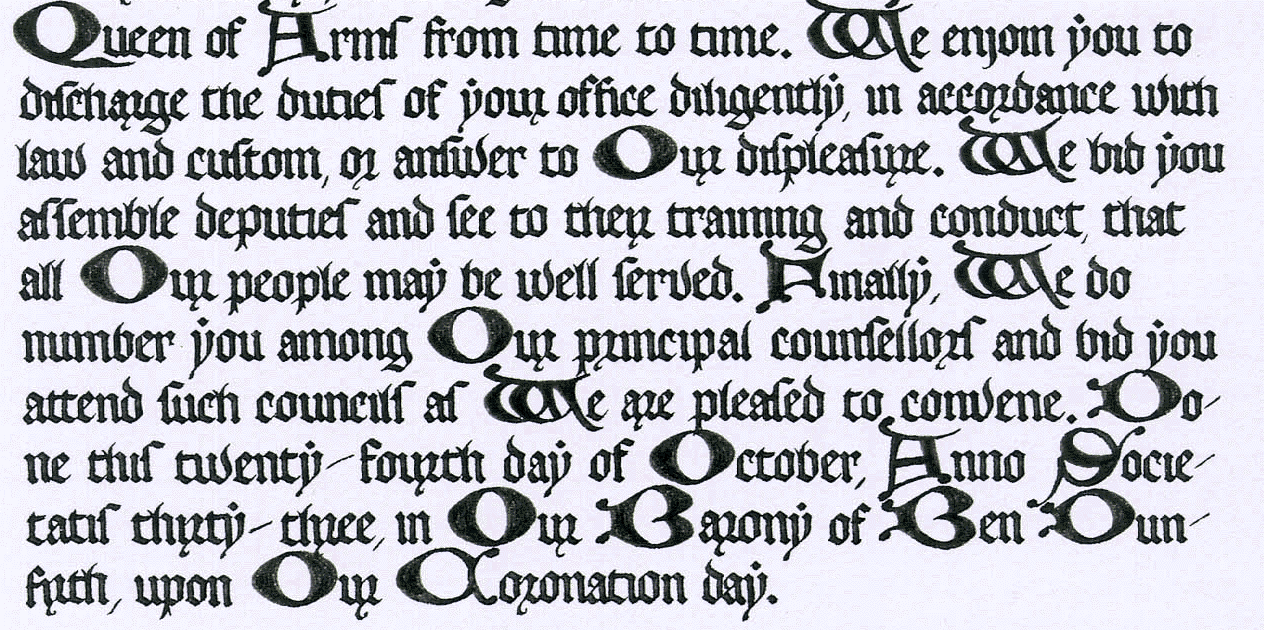 Queen of Arms from time to time. We enjoin you to
discharge the duties of your office diligently, in accordance with
law and custom, or answer to Our displeasure. We bid you
assemble deputies and see to their training and conduct, that
all Our people may be well served. Finally, We do
number you among Our principal counsellors and bid you
attend such councils as We are pleased to convene. Do-
ne this twenty-fourth day of October, Anno Socie-
tatis thirty-three, in Our Barony of Ben Dun-
firth, upon Our Coronation day.